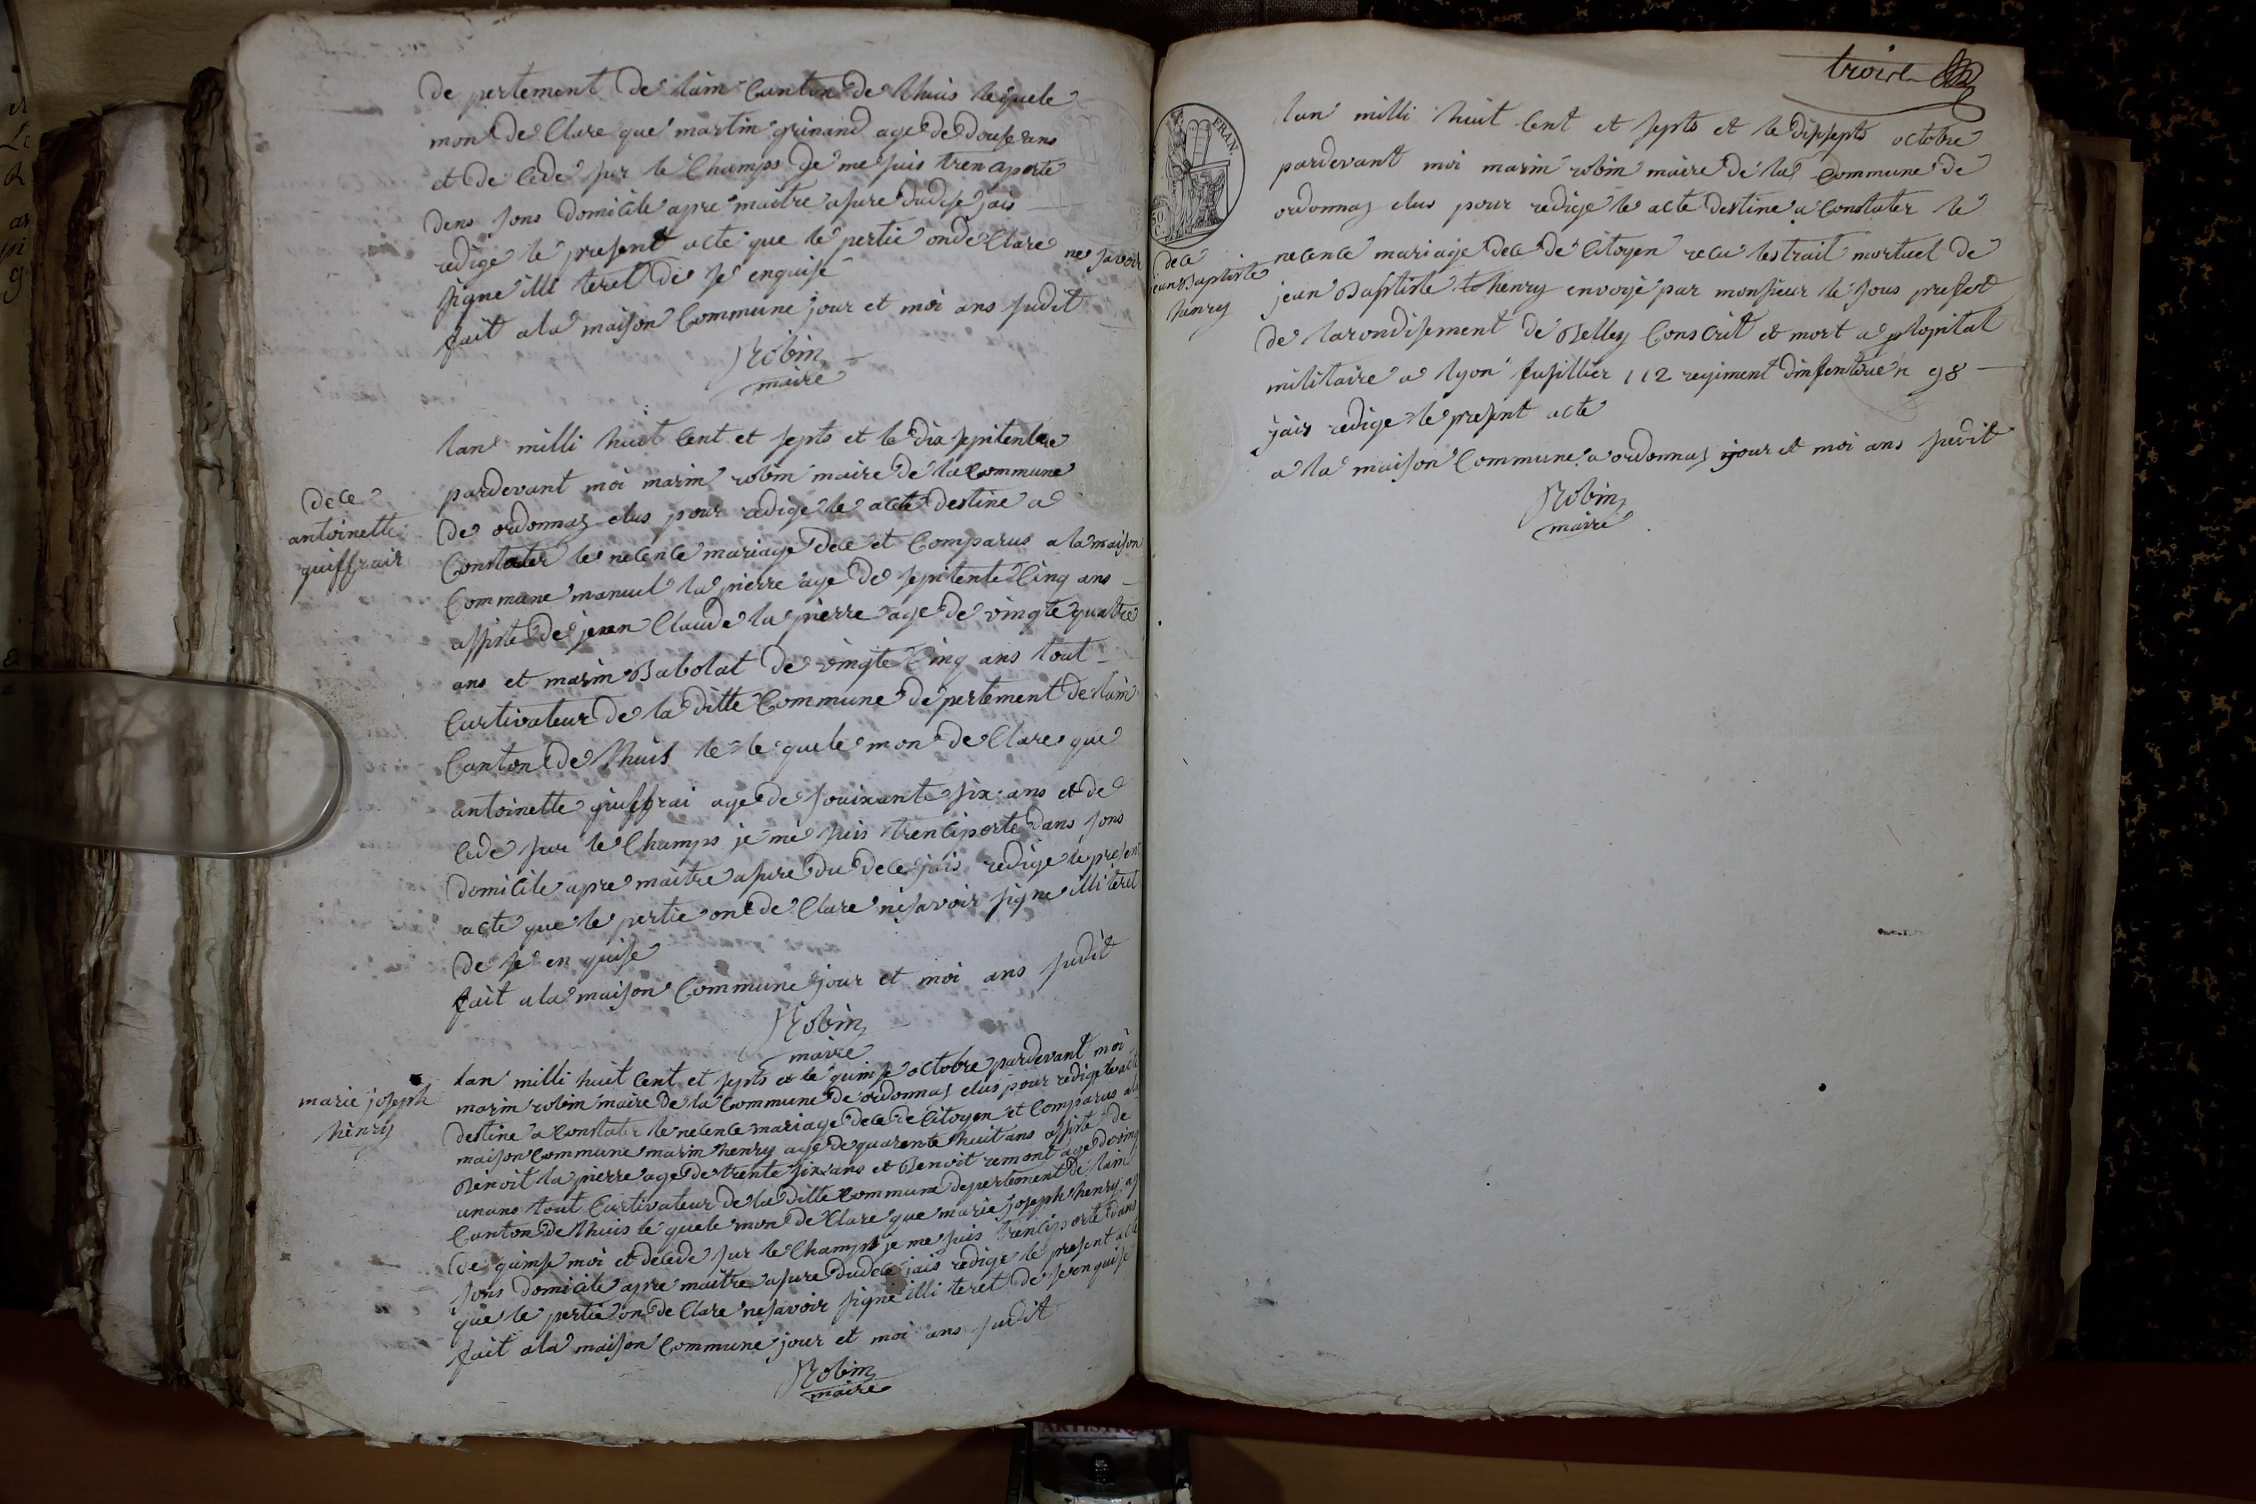 de pertement de lain Canton de lhuis lequele
mon de Clare que martin grinand age de douse ans
et de Cede sur le Champs je me suis trensporte
dens sons domicile apre maitre asure dudise jais
redige le present acte que le pertie on de Clare ne savoir
signe illi teret de se enquise
fait a la maison Commune jour et moi ans sudit
Robin
maire
dece
antoinette
guiffrair
lan milli huit Cent et septs et le dix septenbre
pardevant moi marin robin maire de la Commune
de ordonnaz elus pour redige le acte destine a
Constater le necence mariage dece et Comparus a la maison
Commune manuel la pierre age de septente Cinq ans
assiste de jean Claude la pierre age de vingte quatre
ans et marin Babolat de vingte Cinq ans tout
Curtivateur de la ditte Commune de pertement de lain
Canton de lhuis le le quele mon de Clare que
antoinette giuffrai age de souixante six ans et de
Cede sur le Champs je me suis trensporte dans sons
domicile apre maitre asure du dece jais redige le present
acte que le pertie on de Clare ne savoir signe illi teret
de se en quise
fait a la maison Commune jour et moi ans sudit
Robin
maire
marie joseph
henry
lan milli huit Cent et septs et le quinse octobre pardevant moi
marin robin maire de la Commune de ordonnaz elus pour redige le acte
destine a Constater le necence mariage dece de Citoyen et Comparus a la
maison Commune marin henry age de quarente huit ans assiste de
Benoit la pierre age de trente six ans et Benoit remont age de vingt
unans tout Curtivateur de la ditte Commune de pertement de lain
Canton de lhuis le quele mon de Clare que marie joseph henry ag
de quinse moi et decede sur le Champs je me suis trensporte dans
sons domicile apre maitre asure du dece jais redige le present acte
que le pertie on de Clare ne savoir signe illi teret de se en quise
fait a la maison Commune jour et moi ans sudit
Robin
maire
trois
FRAN.
dece
jean Baptiste
henry
lan milli huit Cent et septs et le dissepts octobre
pardevant moi marin robin maire de la Commune de
ordonnaz elus pour redige le acte destine a Constater le
necence mariage dece de Citoyen recu lestrait mortuel de
jean Baptiste henry envoye par monsieur le sous prefect
de larondisement de Belley Conscrit et mort a lopital
militaire a lyon fusillier 112 regiment dinfenterie n 98
jais redige le present acte
a la maison Commune a ordonnaz jour et moi ans sudit
Robin
maire